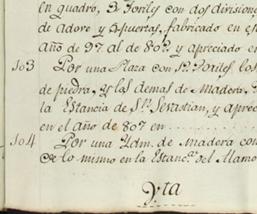 en quadro, 2 Toriles con dos division
de Adove y 2 puertas, fabricado en es
año de 97 al de 80 y apreciado en
103 Por una Plaza con Toriles, los
de piedra, y los demas de Madera,
la Estancia de Sn. Sevastian, y aprec
en el año de 807 en
104 Por una Ydm. de madera con
de lo mismo en la Estanca. del Alamo
Yta